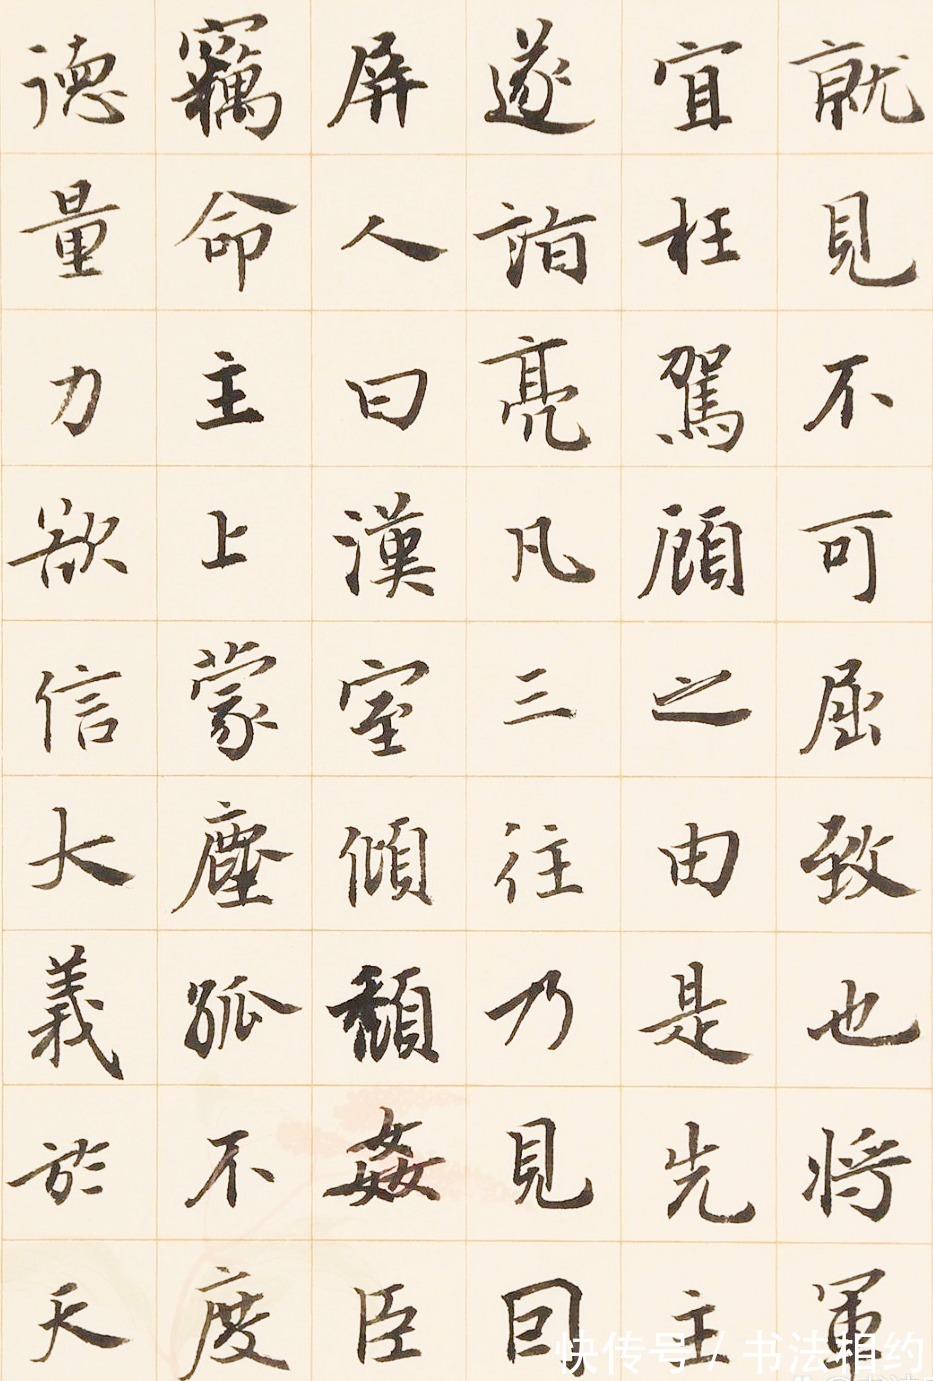 就見不可屈致也將軍
宜枉駕顧之由是先主
遂詣亮凡三往乃見因
屏人曰漢室傾頹姦臣
竊命主上蒙塵孤不度
德量力欲信大義於天
快传号 / 书法相约